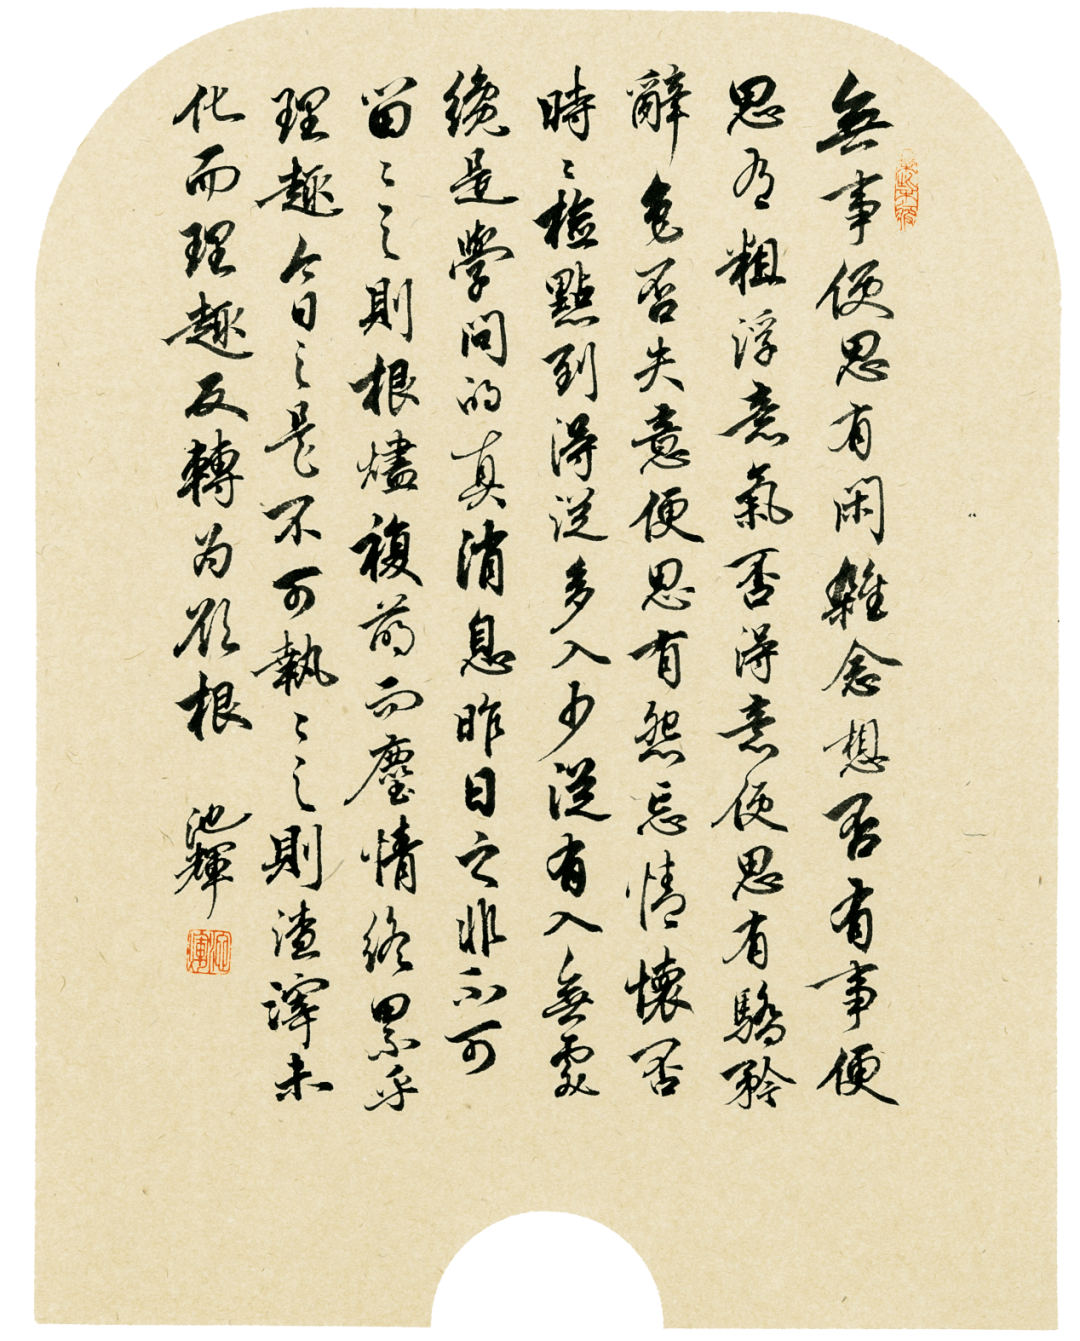 無事便思有閑雜念想否有事便
思有粗浮意氣否得意便思有驕矜
辭色否失意便思有怨忘情懷否
時〻檢點到得從多入少從有入無處
纔是學問的真消息昨日之非不可
留〻之則根燼複萌而塵情終累乎
理趣今日之是不可執〻之則渣滓未
化而理趣反轉为欲根
池輝